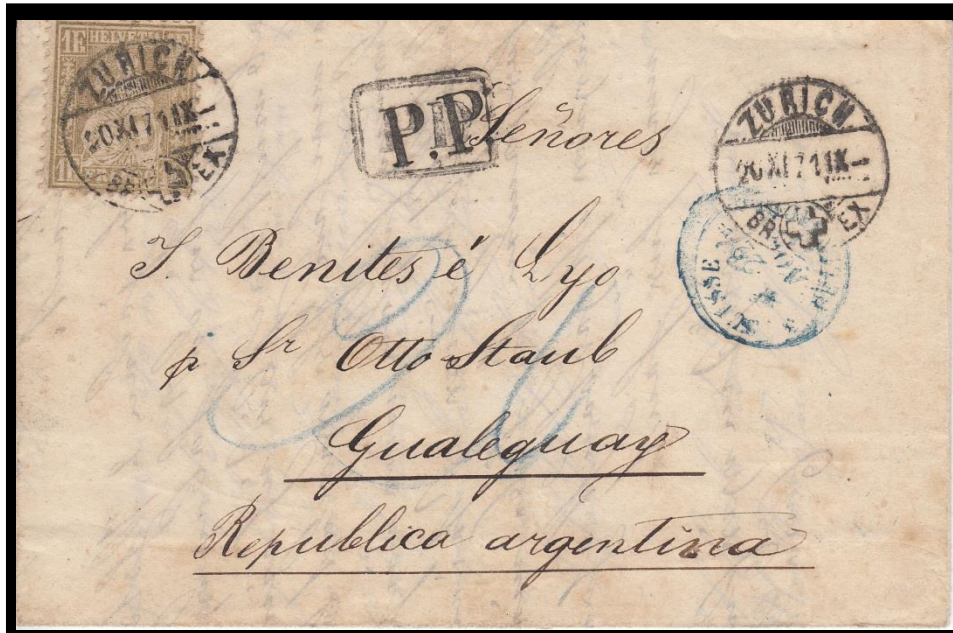 1F HELVETIA
ZURICH
20 XI 71 IX
BR. EXP
P.P.
Señores
ZURICH
20 XI 71 IX
BR. EXP
SUISSE
J. Benites é Lyo
p Sr Otto Staub
Gualeguay
Republica argentina